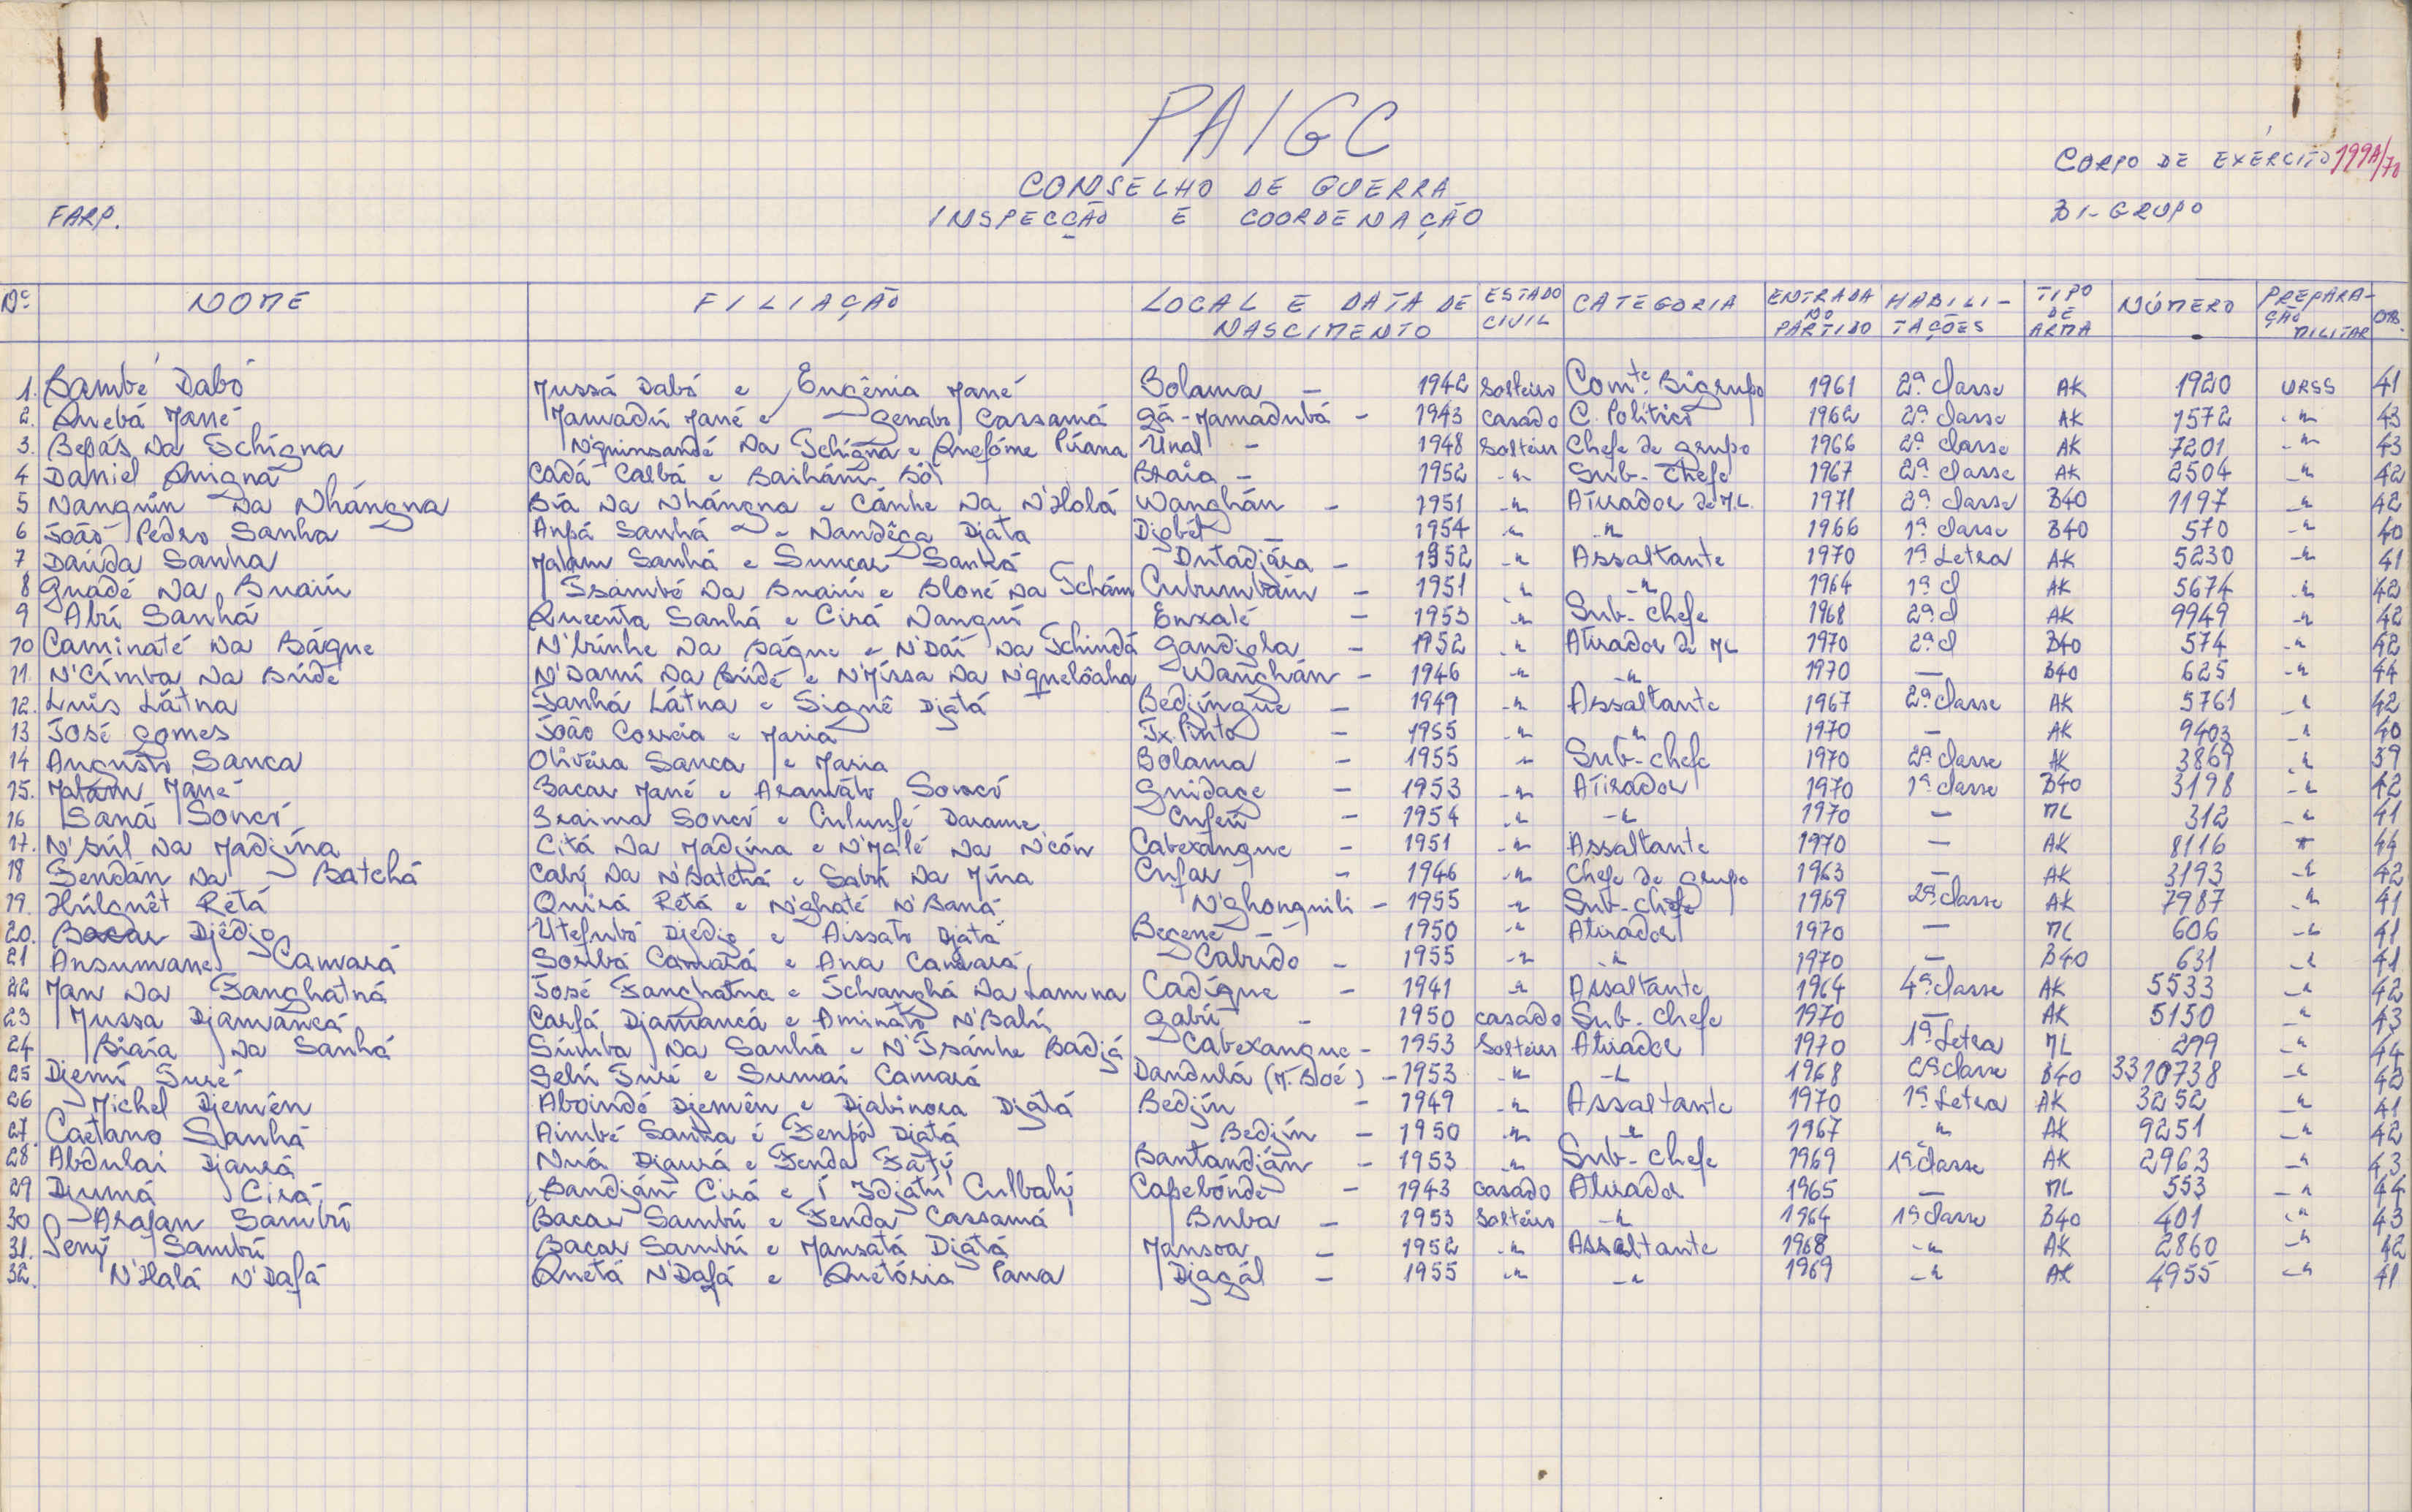 PAIGC
CORPO DE EXÉRCITO 199A/70
CONSELHO DE GUERRA
FARP. INSPECÇÃO E COORDENAÇÃO BI-GRUPO
Nº NOME FILIAÇÃO LOCAL E DATA DE NASCIMENTO ESTADO CIVIL CATEGORIA ENTRADA NO PARTIDO HABILITAÇÕES TIPO DE ARMA NÚMERO PREPARAÇÃO MILITAR OBS.
1. Bambé Dabó Mussá Dabó e Eugênia Mané Bolama - 1942 Solteiro Comte. Bigrupo 1961 2ª classe AK 1920 URSS 41
2. Quebá Mané Mamadú Mané e Genabo Cassamá Gã-Mamadubá - 1943 casado C. Político 1962 2ª classe AK 1572 -"- 43
3. Bepás Na Tchigna N'guinsandé Na Tchigna e Quefóme Pirana Unal - 1948 Solteiro Chefe de grupo 1966 2ª classe AK 7201 -"- 43
4 Daniel Quigná Cadá Calbá e Baihám Bói Braia - 1952 -"- Sub-Chefe 1967 2ª classe AK 2504 -"- 42
5 Nanguin Na Nhángna Biá Na Nhángna e Cánhe Na N'Holá Wanghán - 1951 -"- Atirador de M.L. 1971 2ª classe B40 1197 -"- 42
6 João Pedro Sanha Anpá Sanhá e Nandêga Djata Djobét - 1954 -"- -"- 1966 1ª classe B40 570 -"- 40
7 Daúda Sanha Malam Sanhá e Suncar Sanhá Dutadjára - 1952 -"- Assaltante 1970 1ª Letra AK 5230 -"- 41
8 Guadé Na Buaim Isambé Na Buaim e Bloné Na Tchám Cubumbám - 1951 -"- -"- 1964 1ª cl AK 5674 -"- 42
9 Abú Sanhá Quecuta Sanhá e Cirá Nanguí Enxalé - 1953 -"- Sub-Chefe 1968 2ª cl AK 9949 -"- 42
10 Caminaté Na Bágne N'binhe Na Bágne e N'Daí Na Tchindá Gandigla - 1952 -"- Atirador de ML 1970 2ª cl B40 574 -"- 42
11. N'Címba Na Búdé N'Damí Na Búdé e N'Missa Na N'quelôaha Wanghán - 1946 -"- -"- 1970 - B40 625 -"- 44
12. Luís Látna Sanhá Látna e Signê Djatá Bedjingue - 1949 -"- Assaltante 1967 2ª classe AK 5761 -"- 42
13 José Gomes João Correia e Maria Tx. Pinto - 1955 -"- -"- 1970 - AK 9403 -"- 40
14 Augusto Sanca Oliveira Sanca e Maria Bolama - 1955 -"- Sub-chefe 1970 2ª classe AK 3869 -"- 39
15. Malám Mané Bacar Mané e Aramáto Soncó Guidage - 1953 -"- Atirador 1970 1ª classe B40 3198 -"- 42
16 Saná Soncó Braima Soncó e Culunfé Darame Cufeu - 1954 -"- -"- 1970 - ML 312 -"- 41
17. N'súl Na Madjína Citá Na Madjína e N'Málé Na N'cón Cabexangue - 1951 -"- Assaltante 1970 - AK 8116 -"- 44
18 Fendán Na Batchá Cabí Na N'Batchá e Sabú Na Mína Cufar - 1946 -"- Chefe de grupo 1963 - AK 3193 -"- 42
19. Húlquêt Rétá Quirá Rétá e N'ghaté N'Baná N'ghonquili - 1955 -"- Sub-Chefe 1969 2ª classe AK 7987 -"- 41
20. Bacar Djêdjo Utefubó Djedjo e Aissato Djatá Begené - 1950 -"- Atirador 1970 - ML 606 -"- 41
21 Ansumane Camará Soribá Camará e Ana Camará Cabudo - 1955 -"- -"- 1970 - B40 631 -"- 41
22 Mam Na Fanghatná José Fanghatna e Tchanghá Na Lamna Cadígue - 1941 -"- Assaltante 1964 4ª classe AK 5533 -"- 42
23 Mussa Djamancá Carfá Djamancá e Amináto N'Balú Gabú - 1950 casado Sub-Chefe 1970 - AK 5150 -"- 43
24 Biaía Na Sanhá Súmba Na Sanhá e N'Tsánhe Badjá Cabexangue - 1953 Solteiro Atirador 1970 1ª Letra ML 299 -"- 44
25 Djemí Turé Selú Turé e Sumai Camará Dandulá (M. Boé) - 1953 -"- -"- 1968 2ª classe B40 3310738 -"- 42
26 Michel Djemên Aboindó Djemên e Djabinora Djátá Bedjín - 1949 -"- Assaltante 1970 1ª Letra AK 3252 -"- 41
27. Caetano Sanhá Aimbé Sanha e Fenpó Djatá Bedjín - 1950 -"- -"- 1967 -"- AK 9251 -"- 42
28 Abdulai Djaurá Nuá Djaurá e Fenda Fatý Bantandján - 1953 -"- Sub-Chefe 1969 1ª classe AK 2963 -"- 43
29 Djumá Cirá Bandján Cirá e Idjatú Culbalý Capebónde - 1943 casado Atirador 1965 - ML 553 -"- 44
30 Arafan Sambú Bacar Sambú e Fenda Cassamá Buba - 1953 Solteiro -"- 1964 1ª classe B40 401 -"- 43
31. Sený Sambú Bacar Sambú e Mansatá Djatá Mansoa - 1952 -"- Assaltante 1968 -"- AK 2860 -"- 42
32. N'Halá N'Dafá Quetá N'Dafá e Quetória Pana Djagál - 1955 -"- -"- 1969 -"- AK 4955 -"- 41